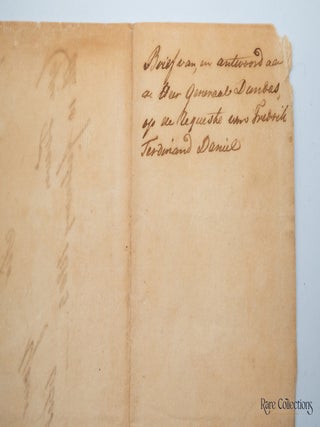 Brief van, en antwoord aan
de Heer Generaal Dundas,
op de Requeste van Fredrik
Ferdinand Daniel
Rare Collections